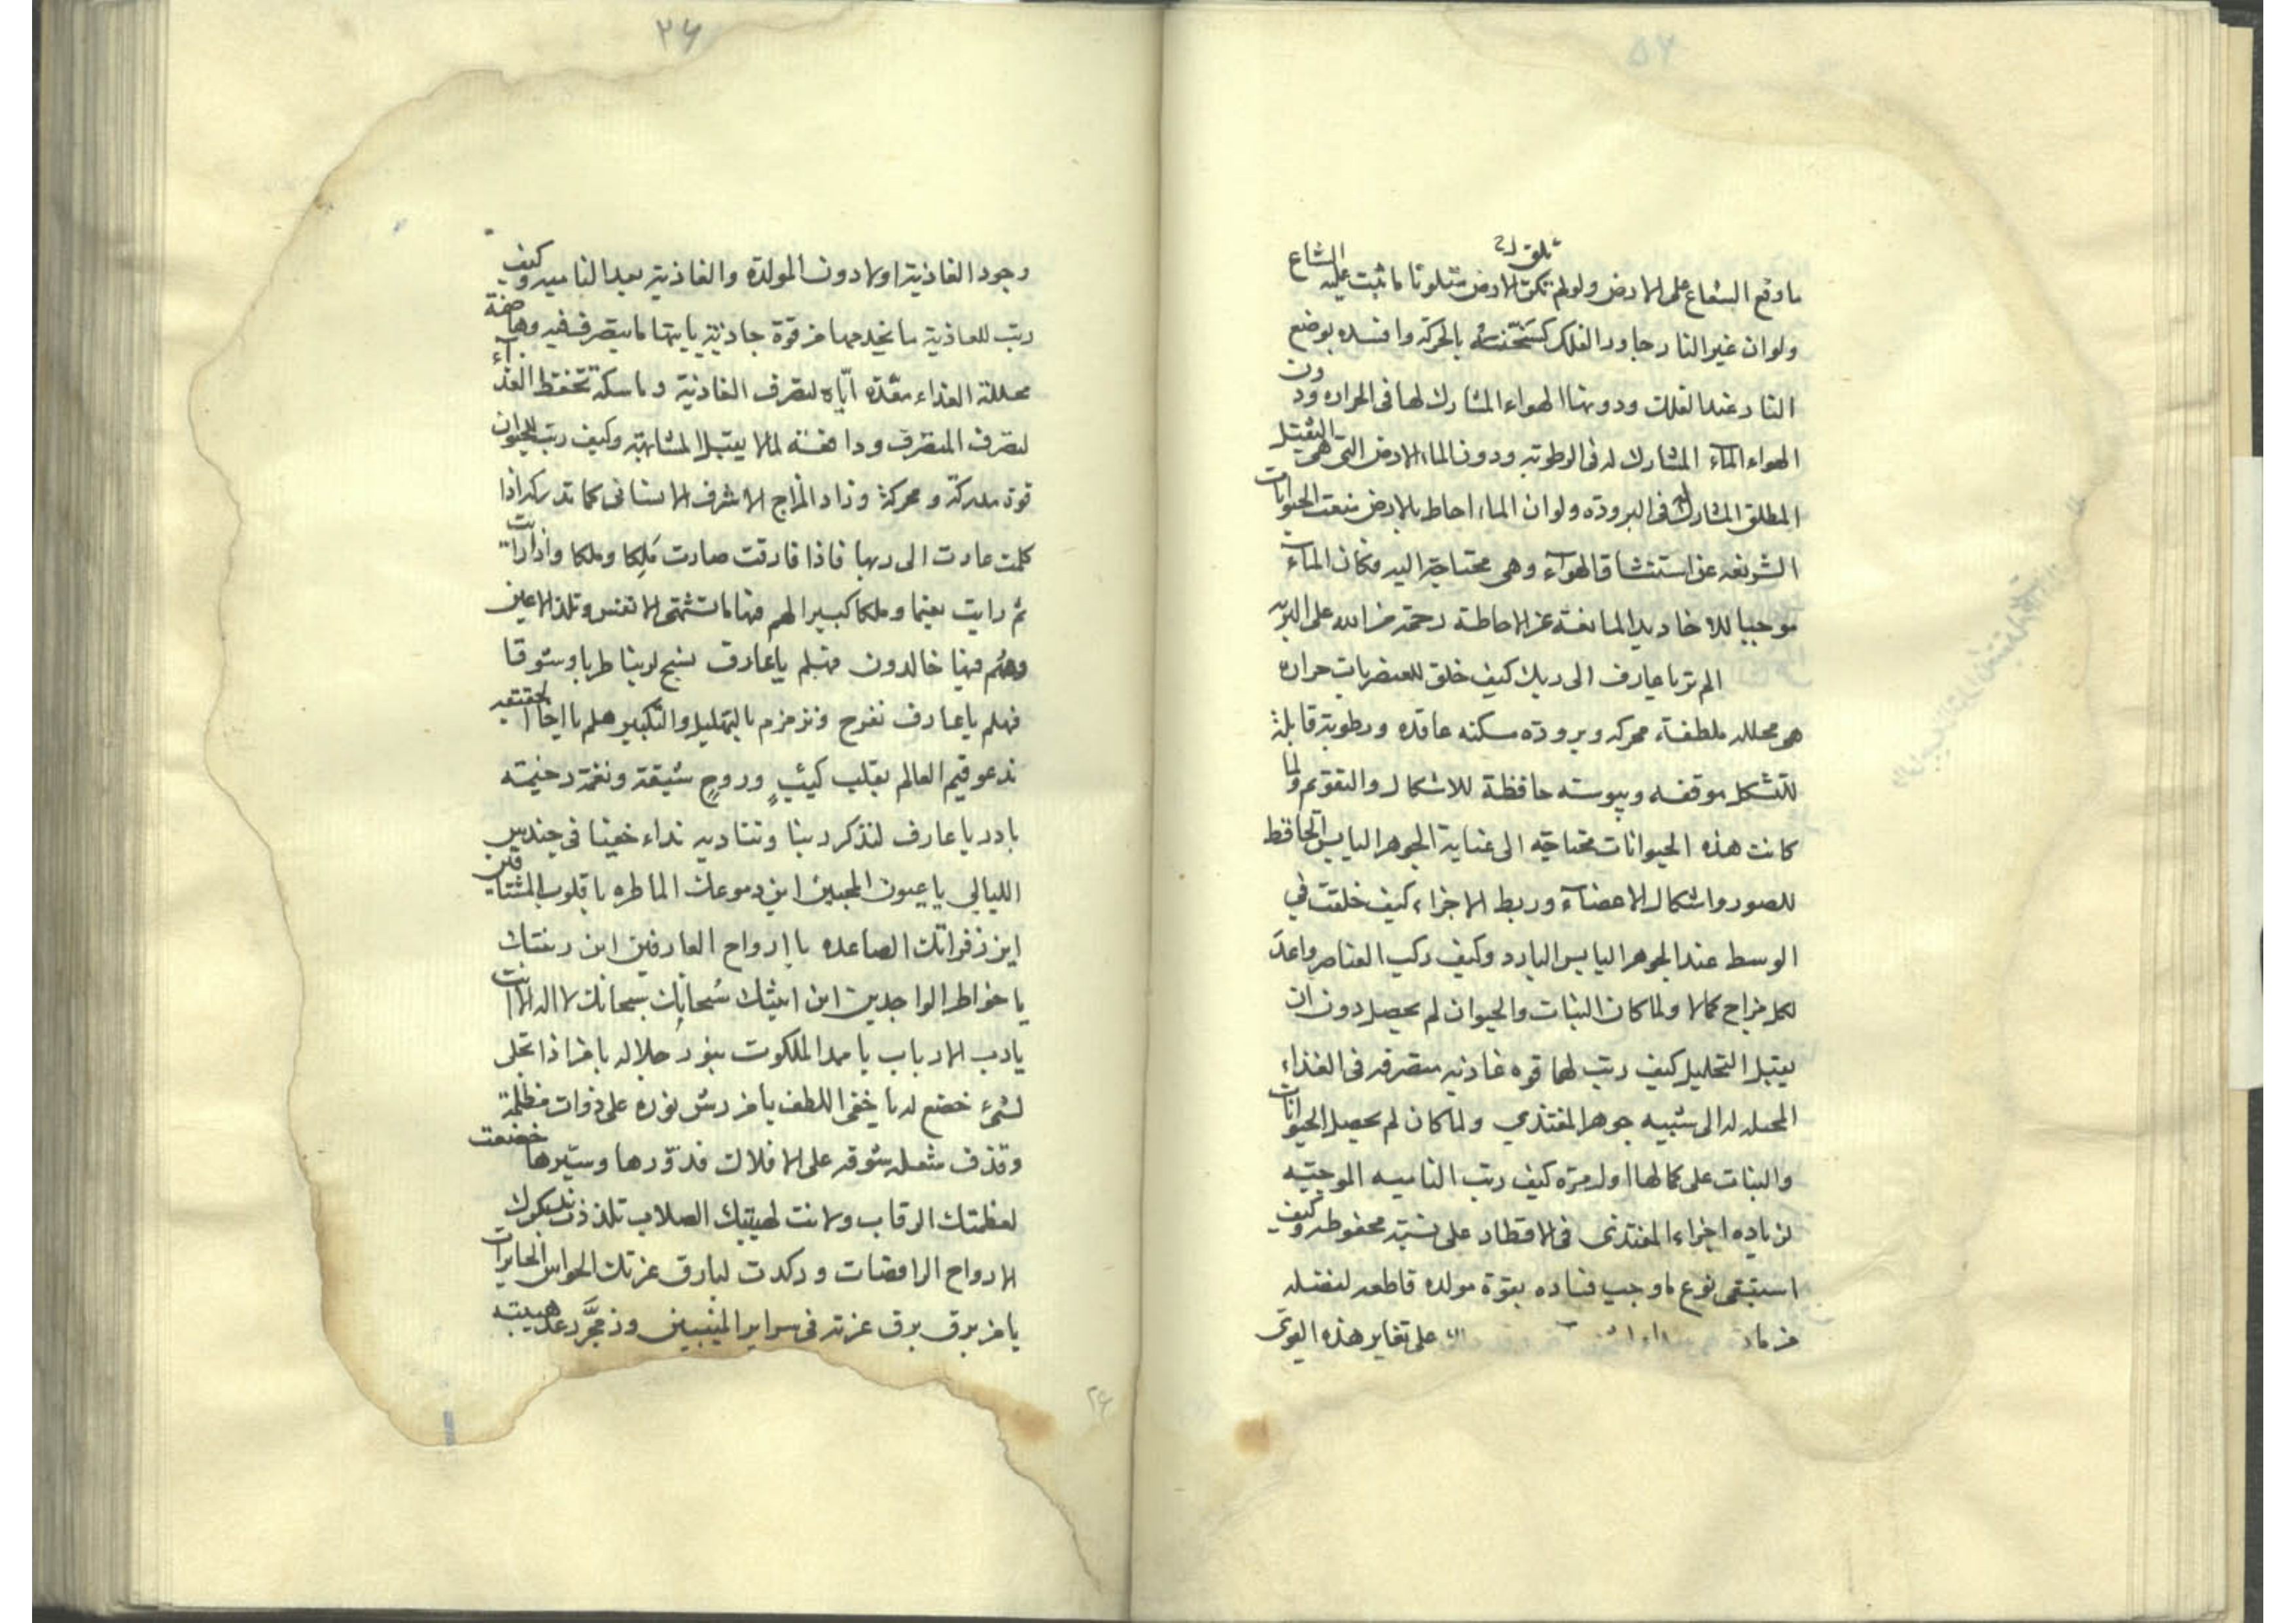 ۵۲
ما وقع الشعاع على الارض ولو لم تكن الارض متلونا ما ثبت عليه الشعاع
ولو ان غير النار جاور الفلك لسخنت بالحركة وافسده بوضع
النار عند الفلك ودونها الهواء المشارك لها فى الحراره ودون
الهواء الماء المشارك له فى الرطوبه ودون الماء الارض التى هى الثقيل
المطلق المشارك له فى البرودة ولو ان الماء احاط بالارض منعت الحيوانات
الشريفه عن استنشاق الهواء وهى محتاجة اليه فكان الماء
موجبا للاخاديد المانعة عن الاحاطة رحمة من الله على البريه
الم تر يا عارف الى ربك كيف خلق للعنصريات حراره
هى محلله ملطفة محركه وبرودة مسكنه عاقده ورطوبة قابلة
للتشكل موقفه ويبوسته حافظة للاشكال والتقويم ولما
كانت هذه الحيوانات محتاجة الى عناية الجوهر اليابس الحافظ
للصور واشكال الاعضاء وربط الاجزاء كيف خلقت في
الوسط عند الجوهر اليابس البارد وكيف ركب العناصر واعد
لكل مزاج كمالا ولما كان النبات والحيوان لم يحصل دون ان
يقبل التحليل كيف رتب لهما قوه غاذيه متصرفه فى الغذاء
المحيله له الى شبيه جوهر المغتذي ولما كان لم يحصل الحيوانات
والنبات على كمالها اول مرة كيف رتب الناميه الموجبه
لزياده اجزاء المغتذى فى الاقطار على نسبة محفوطه وكيف
استبقى نوع ما وجب فساده بقوة مولده قاطعه لفضله
من مادة على تغاير هذه القوى
۲۶
وجود الغاذية اولا دون المولدة والغاذية بعد الناميه وكيف
رتب للغاذية ما يخدمها من قوة جاذبة ياتيها ما يتصرف فيه وهاضمة
محللة الغذاء معدة اياه لتصرف الغاذية وماسكة تحفظ الغذاء
لتصرف المتصرف ودافعة لما لا يقبل المشابهة وكيف رتب للحيوان
قوة مدركة ومحركة وزاد المزاج الاشرف الانسانى كما تدركه اذا
كلمت عادت الى ربها فاذا فارقت صارت ملكا وملكا واذا رايت
ثم رايت نعيما وملكا كبيرا لهم فيها ما تشتهى الانفس وتلذ الاعين
وهم فيها خالدون فهلم يا عارف نسبح لربنا طربا وشوقا
فهلم يا عارف نفرح ونزمزم بالتهليل والتكبير هلم يا اخا الحقيقه
ندعو قيم العالم بقلب كئيب وروح شيقة ونغمة رخيمة
بادر يا عارف لنذكر ربنا ونناديه نداء خفيا فى حندس
الليالي يا عيون المحبين اين دموعك الماطره يا قلوب المشتاقين
اين زفراتك الصاعده يا ارواح العارفين اين رنتك
يا خواطر الواجدين اين انينك سبحانك سبحانك لا اله الا انت
يا رب الارباب يا مبدا الملكوت بنور جلاله يا من اذا تجلى
لشىء خضع له يا خفى اللطف يا من رش نوره على ذوات مظلمة
وقذف شعله شوقه على الافلاك فدورها وسيرها خضعت
لعظمتك الرقاب ولانت لهيبتك الصلاب تلذذت بذكرك
الارواح الراقصات وركدت لبارق عزتك الحواس الحايرات
يا من برق برق عزته فى سراير المنيبين وزمجر رعد هيبته
۲۶